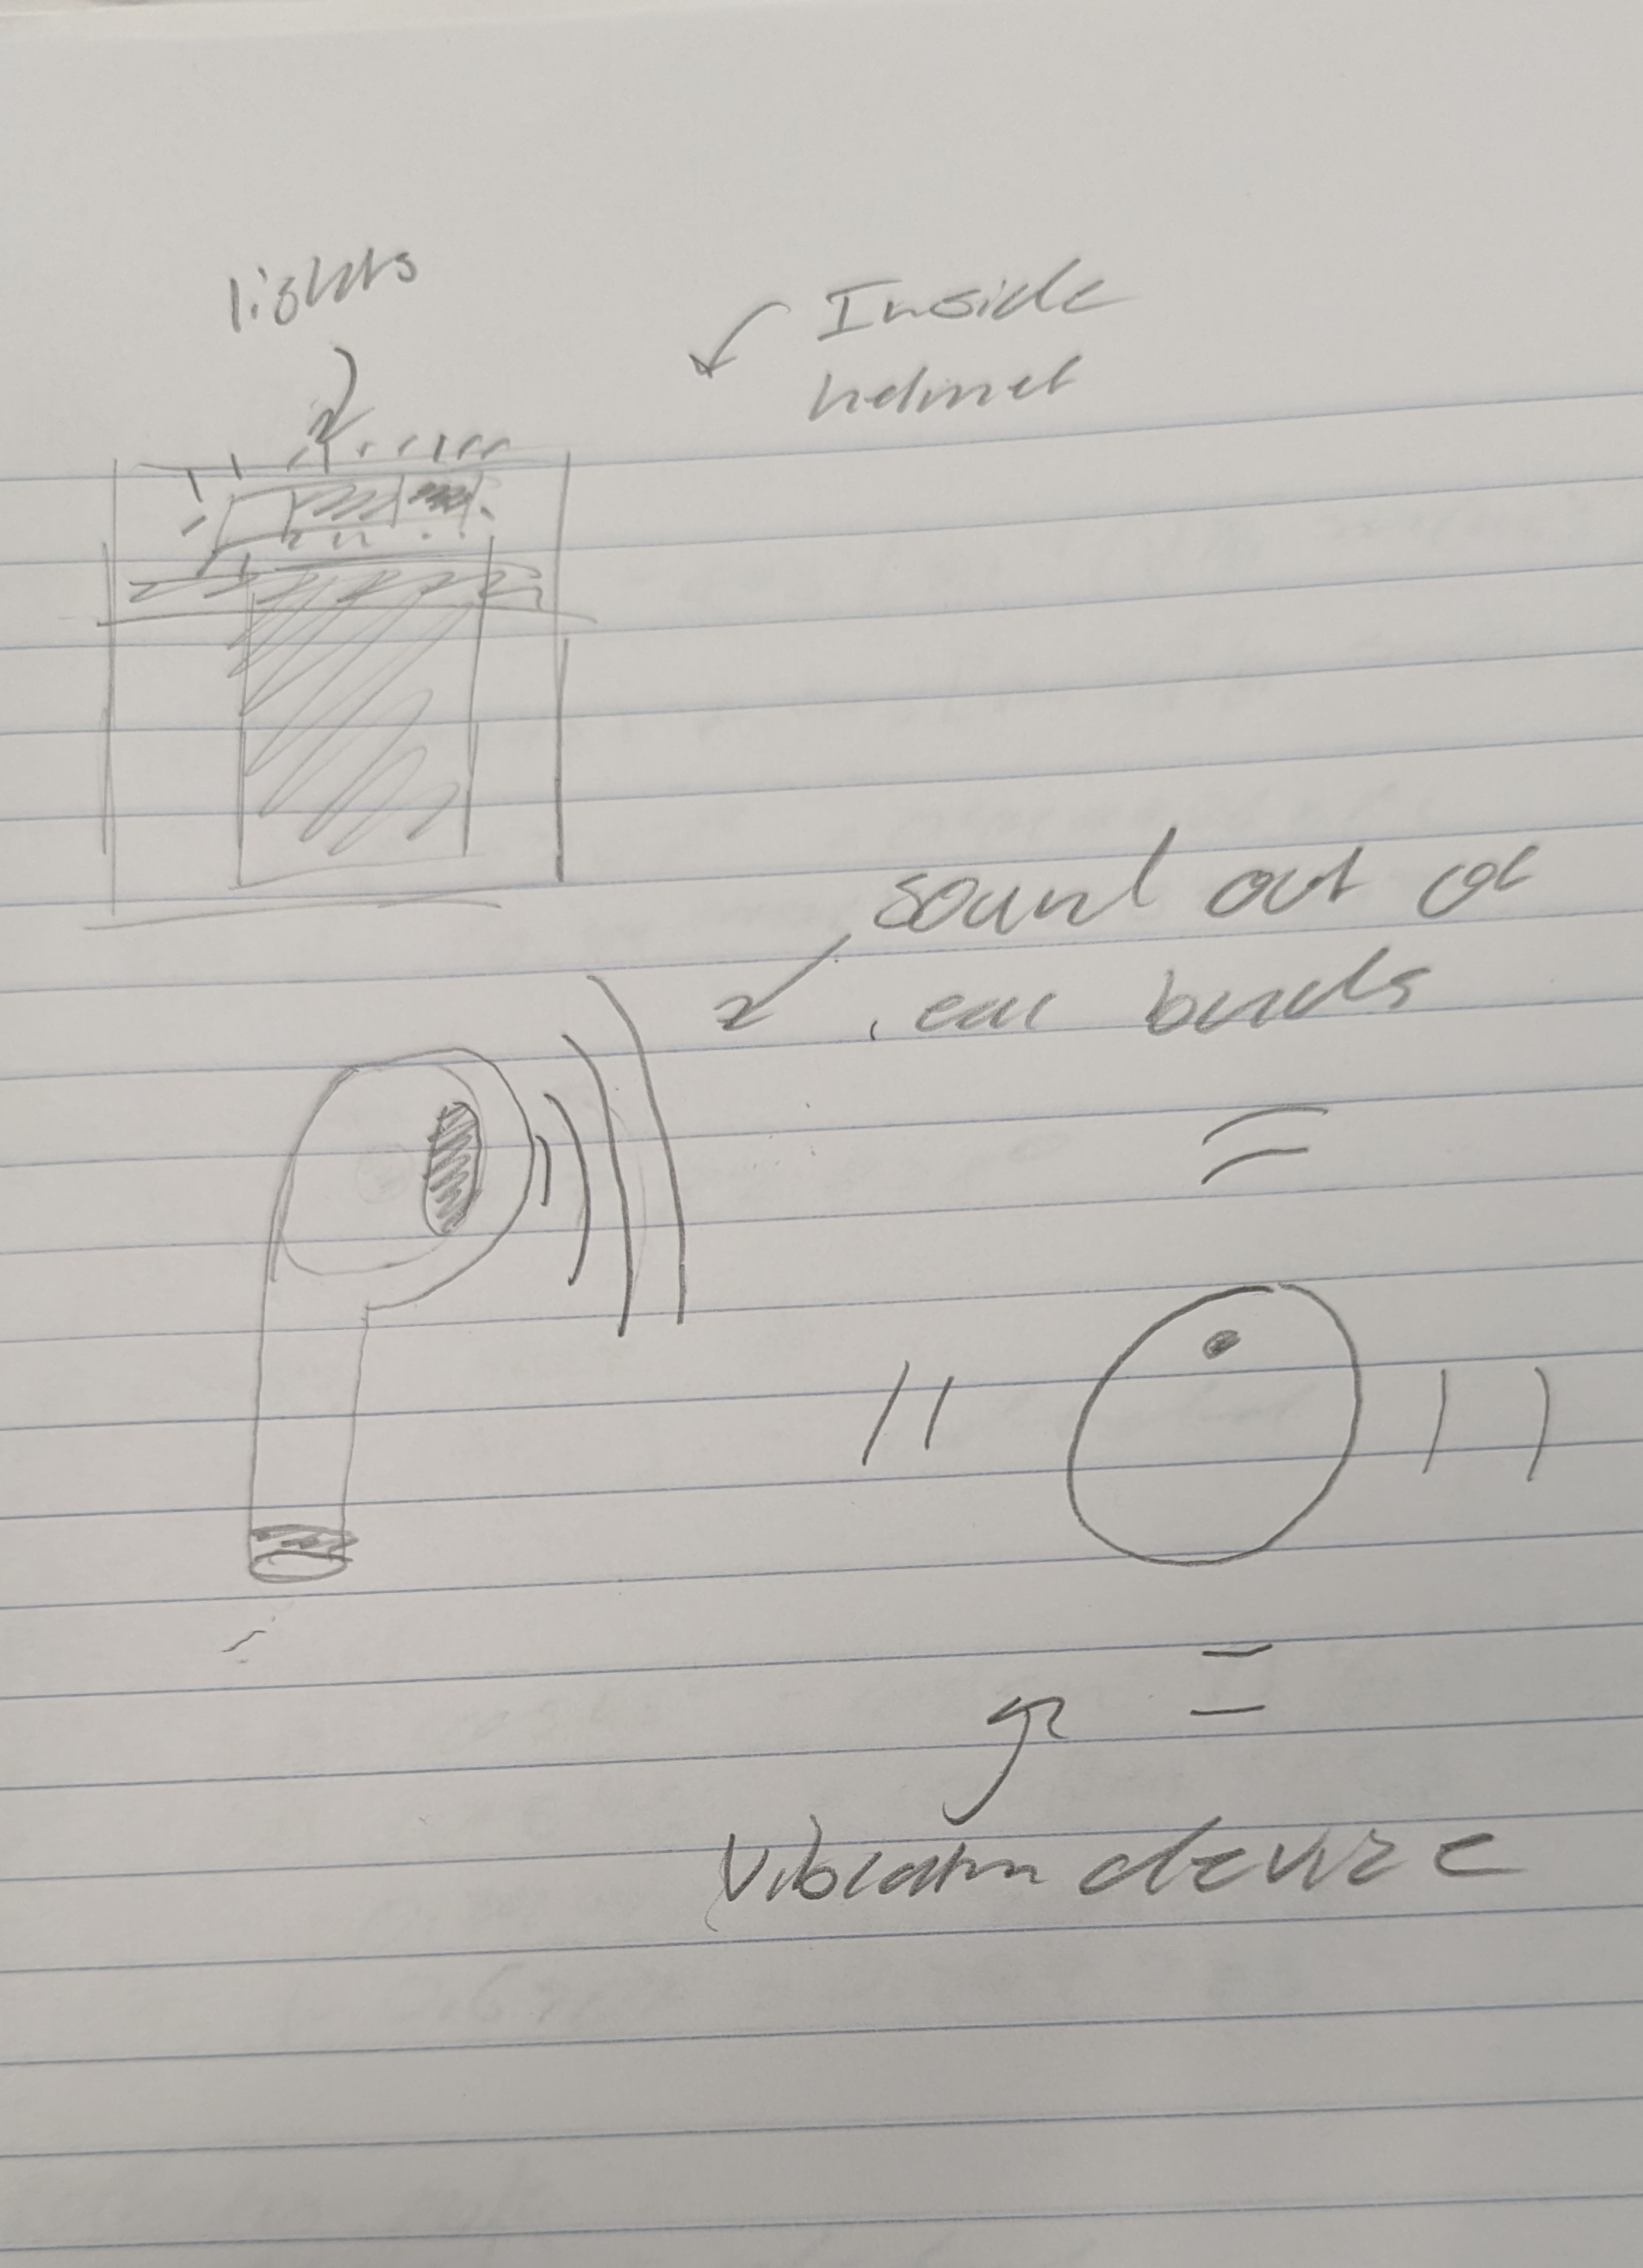 lights
Inside
helmet
sound out of
ear buds
Vibration device